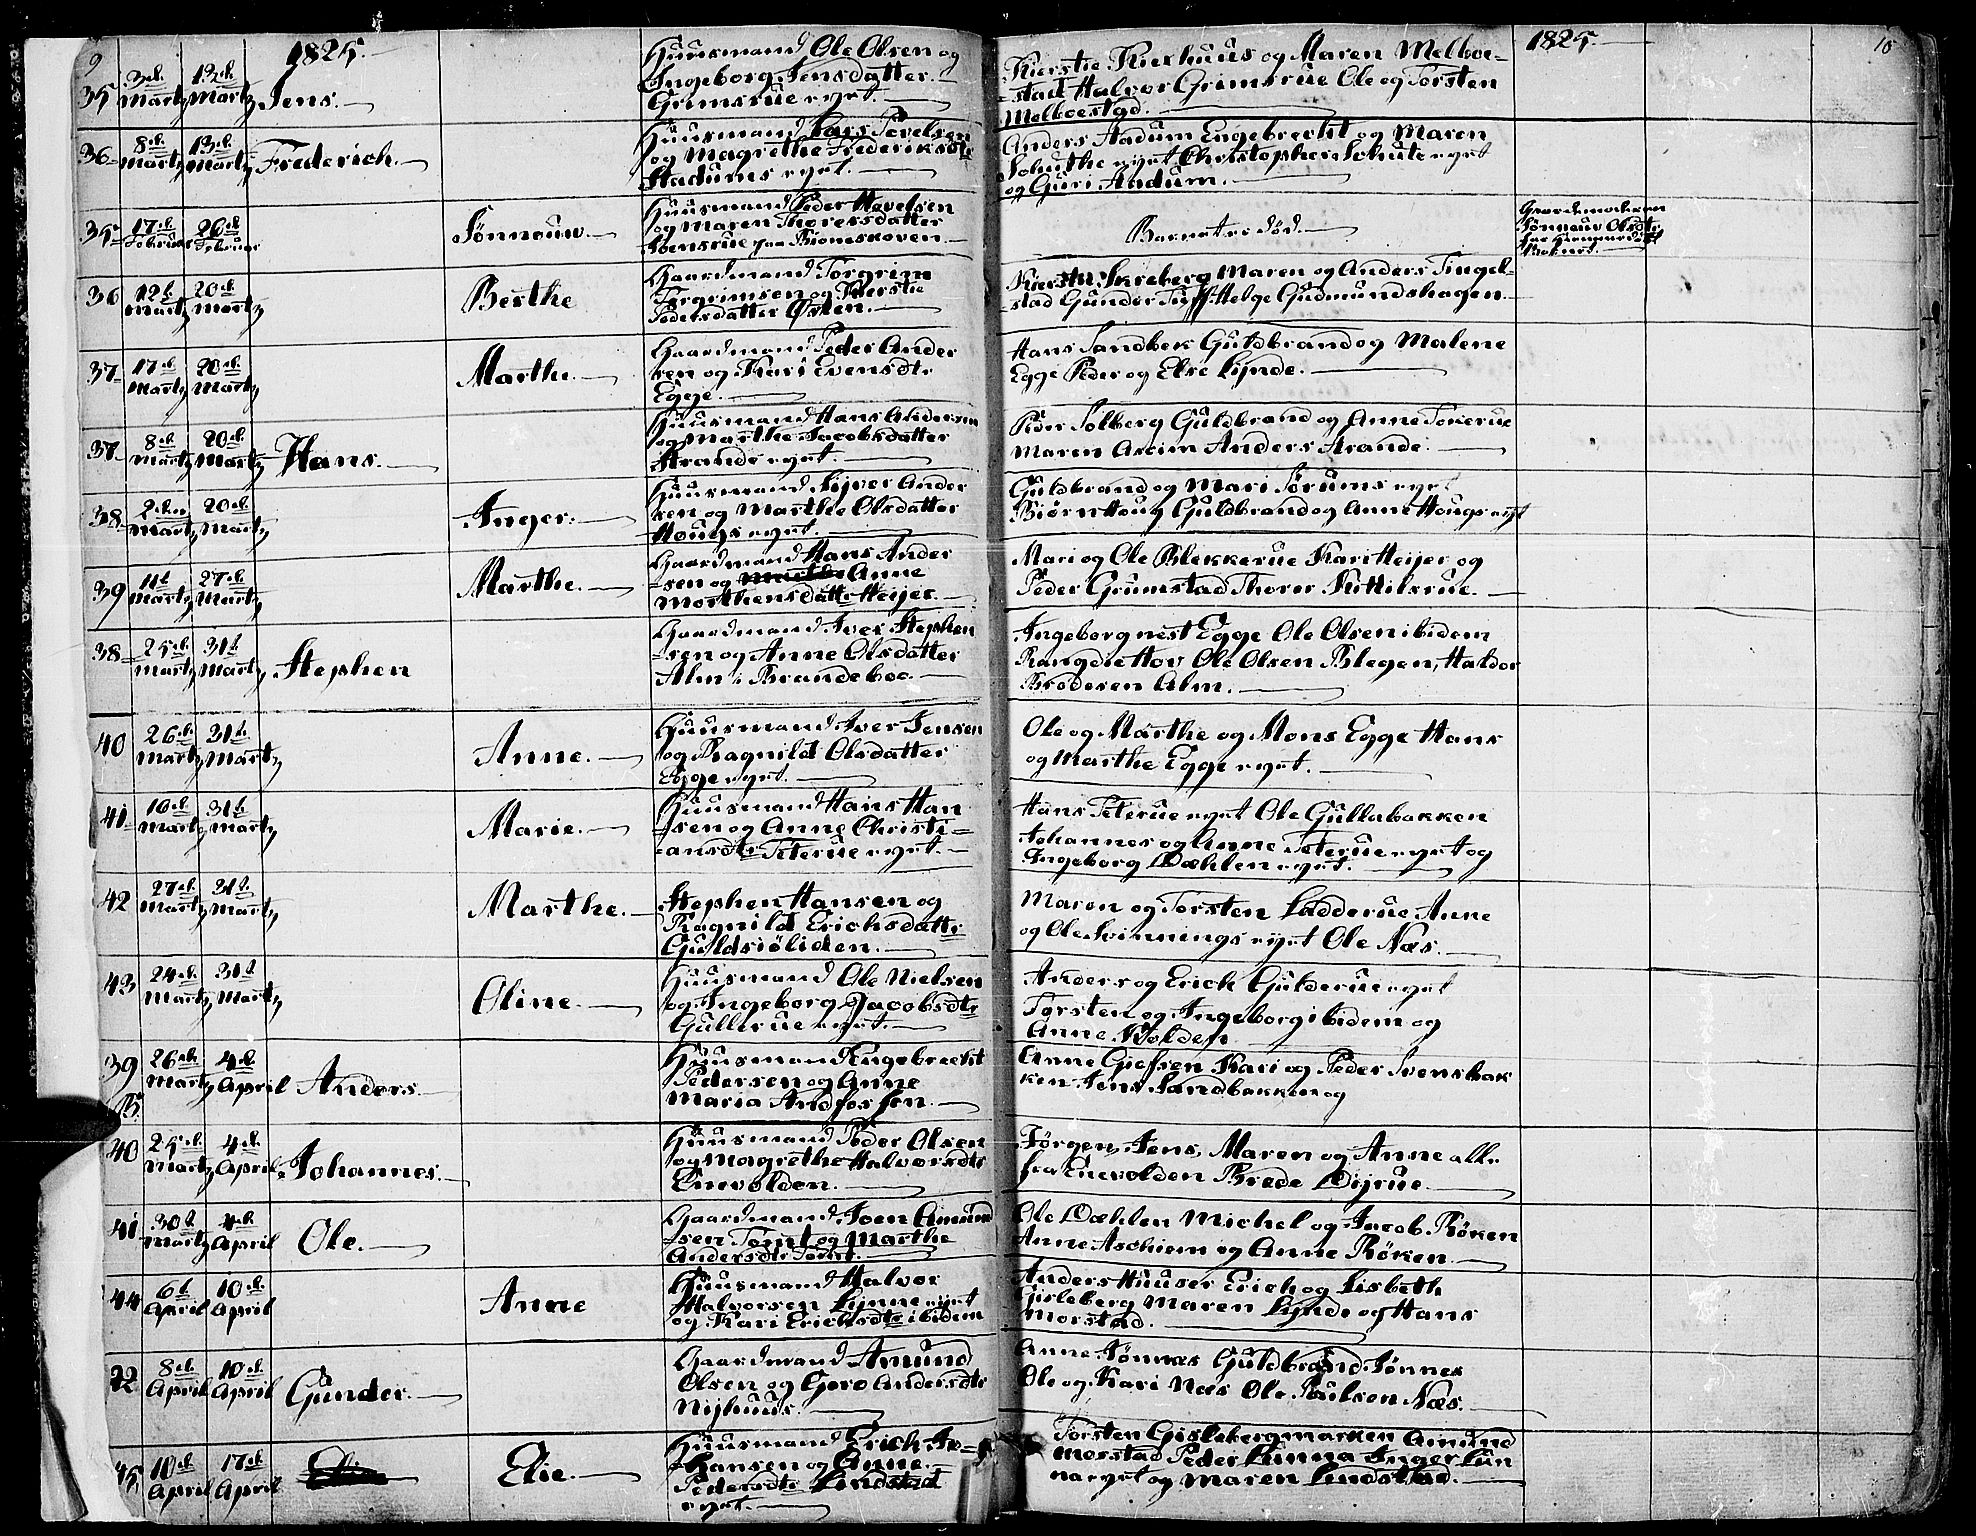 9
1825.
35 3d. Martz 13d. Martz Jens.
Huusmand Ole Olsen og
Ingeborg Jensdatter
Grimsrue eyet.
Kierstie Kierhuus og Maren Melboe-
stad Halvor Grimsrue Ole og Torsten
Melboestad.
1825.
10
36 8d. Martz 13d. Martz Frederich.
Huusmand Lars Povelsen
og Magrethe Frederiksdtr
Hadums eyet.
Anders Hadum Engebrecht og Maren
Schuthe eyet Christopher Schute eyet
og Guri Hadum.
35 17d. Februar 26d. Februar Sønnouw.
Huusmand Peder Hovelsen
og Maren Thoresdatter
Joensrue paa Biomskoven
Barnet er død.
Sønnouw Olsdtr
36 12t. Martz 20d. Martz Berthe
Gaardmand Torgrim
Torgrimsen og Kierstie
Pedersdatter Østen.
Kierstie Skreberg Maren og Anders Tingel-
stad Gunder Tuff Helge Gudmundshagen
37 17d. Martz 20d. Martz Marthe.
Gaardmand Peder Ander
sen og Kari Evensdtr
Egge.
Hans Sandbek Guldbrand og Malene
Egge Peder og Else Lynde.
37 8d. Martz 20d. Martz Hans.
Huusmand Hans Andersen
og Marthe Jacobsdatter
Strande eyet.
Peder Solberg Guldbrand og Anne Tokerue
Maren Askim Anders Strande.
38 2den Martz 20d. Martz Inger.
Huusmand Siver Ander
sen og Marthe Olsdatter
Hougs eyet.
Guldbrand og Mari Sørums eyet
Biørn Houg Guldbrand og Anne Hougs eyet
39 11t Martz 27d. Martz Marthe.
Gaardmand Hans Ander
-sen og Anne
Morthensdattr Heijer.
Mari og Ole Blekkerue Kari Heijer og
Peder Grumstad Thorer Kittilsrue.
38 25d. Martz 31t Martz Stephen
Gaardmand Iver Stephen
-sen og Anne Olsdatter
Alm i Brandeboe.
Ingeborg nest Egge Ole Olsen ibidem
Rangdie Hov Ole Olsen Blegen, Haldor
Brodersen Alm.
40 26d. Martz 31t. Martz Anne.
Huusmand Iver Jensen
og Ragnild Olsdatter
Egge eyet.
Ole og Marthe og Mons Egge Hans
og Marthe Egge eyet.
41 10d. Martz 31t. Martz Marie.
Huusmand Hans Han
-sen og Anne Christi-
-ansdtr Teterue eyet.
Hans Teterue eyet Ole Gullabakken
Johannes og Anne Teterue eyet og
Ingeborg Dæhlen eyet.
42 27d. Martz 31t. Martz Marthe.
Stephen Hansen og
Ragnild Erichsdattr
Guldsiøliden.
Maren og Torsten Ladderue Anne
og Ole Svinnings eyet Ole Næs.
43 24d. Martz 31t Martz Oline.
Huusmand Ole Nielsen
og Ingeborg Jacobsdtr
Gullerue eyet.
Anders og Erich Gulderue eyet
Torsten og Ingeborg ibidem og
Anne Kolden
39 26d. Martz 4d. April Anders.
Huusmand Engebrecht
Pedersen og Anne
Maria Andfossen.
Anne Giefsen Kari og Peder Svensbak
ken Jens Sandbakken og
40 25d. Martz 4d. April Johannes.
Huusmand Peder Olsen
og Magrethe Halvorsdtr
Enevolden.
Jørgen, Jens, Maren og Anne alle
fra Enevolden Brede Dijrue
41 30t Martz 4d. April Ole.
Gaardmand Joen Amund
-sen Tømt og Marthe
Andersdtr Tømt.
Ole Dæhlen Michel og Jacob Røken
Anne Aschiem og Anne Røken
44 6t April 10d. April Anne
Huusmand Halvor
Halvorsen Lynne eyet
og Kari Erichsdtr ibidem
Anders Huuser Erich og Lisbeth
Gisleberg Maren Lynde og Hans
Morstad.
42 8d. April 10d. April Gunder.
Gaardmand Amund
Olsen og Goro Andersdtr
Nijhuus.
Anne Jønnes Guldbrand Jønnes
Ole og Kari Næs Ole Poulsen Næs.
45 10d. April 17d. April Elie.
Huusmand Erich Jo-
-hansen og Anne
Pedersdtr Lindstad
eyet.
Torsten Gislebergmarken Amund
Morstad Peder Lunna Inger Lun
na eyet og Maren Lindstad.